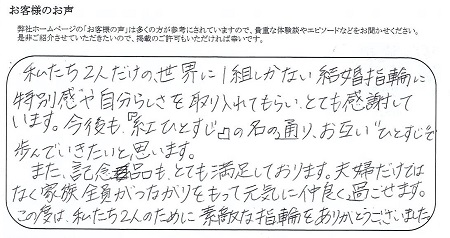 お客様のお声
弊社ホームページの「お客様の声」は多くの方が参考にされていますので、貴重な体験談やエピソードなどをお聞かせください。
是非ご紹介させていただきたいので、掲載のご許可もいただければ幸いです。
私たち2人だけの、世界に1組しかない結婚指輪に
特別感や自分らしさを取り入れてもらい、とても感謝して
います。今後も、『紅ひとすじ』の名の通り、お互い"ひとすじ"で
歩んでいきたいと思います。
また、記念品も、とても満足しております。夫婦だけでは
なく家族全員がつながりをもって元気に仲良く過ごせます。
この度は、私たち2人のために素敵な指輪をありがとうございました